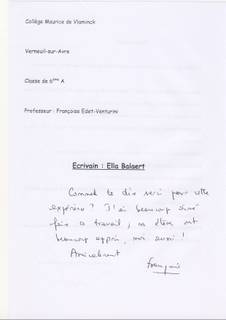 Collège Maurice de Vlaminck
Verneuil-sur-Avre
Classe de 6ème A
Professeur : Françoise Edet-Venturini
Ecrivain : Ella Balaert
Comment te dire merci pour cette
expérience ? J'ai beaucoup aimé
faire ce travail, mes élèves ont
beaucoup appris, moi aussi !
Amicalement
Françoise